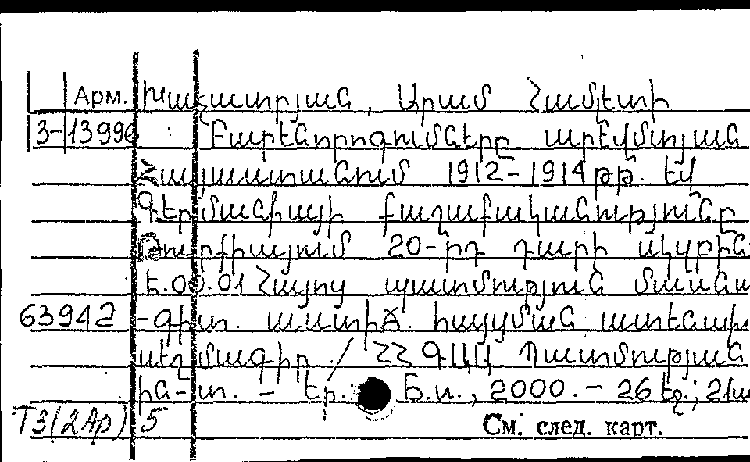 Арм. Խաչատրյան, Արամ Համլետի
3-13996 Բարենորոգումները արևմտյան
Հայաստանում 1912-1914թթ. եվ
Գերմանիայի քաղաքականությունը
Թուրքիայում 20-րդ դարի սկզբին
Է.00.01 Հայոց պատմություն մասնա
63942 -գիտ. աստիճ. հայցման ատենախ
սեղմագիր / ՀՀ ԳԱԱ Պատմության
ին-տ. - Եր. Բ.ա., 2000. - 26 էջ; 21
Т3(2Ар) 5 См. след. карт.